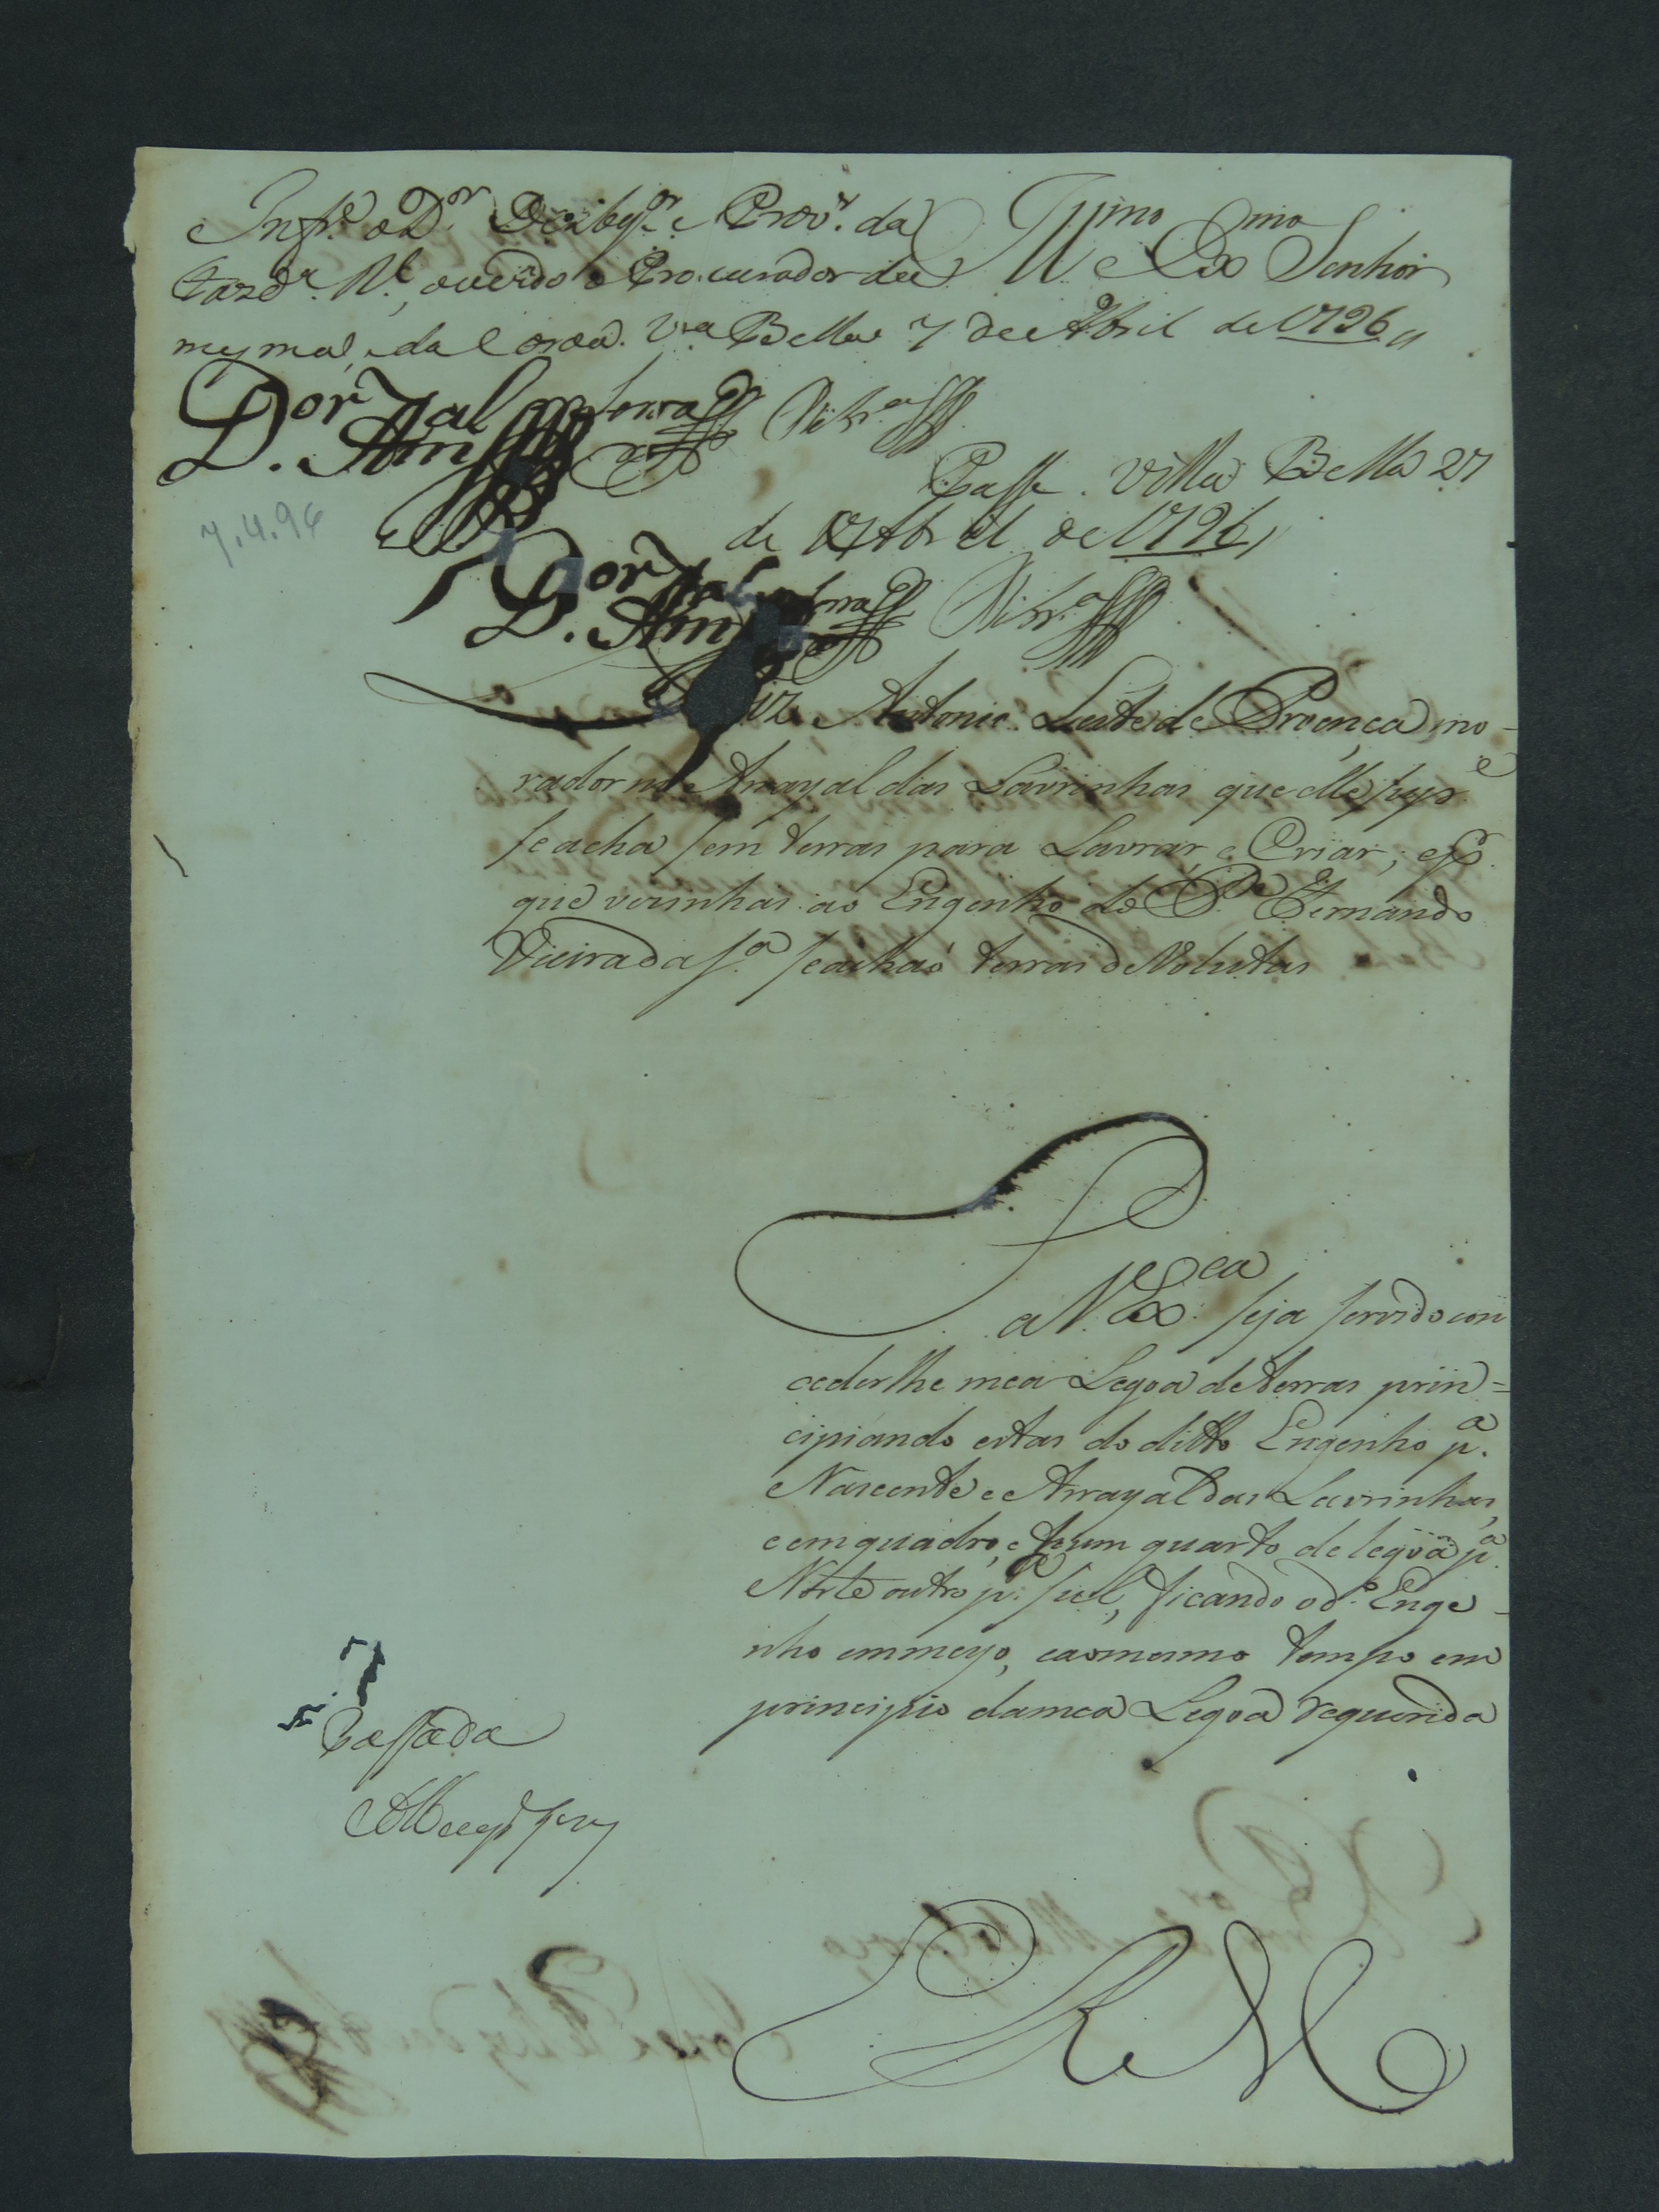 Infe. o Dor. Dezbgor. e Provr. da
Fazda. Rl., ouvido o Procurador da
mesma, e da Coroa. Va. Bella 7 de Abril de 1796,,
Illmo e Exmo Senhor
Dor
7.4.96
Passe. Villa Bella 27
de Abril de 1796,,
Dor
Diz Antonio Leite de Proença mo-
rador no Arrayal das Lavrinhas que elle supe.
se acha sem terras para Lavrar, e Criar; e
que vezinhas ao Engenho do Pe. Fernando
Vieira da Sa. se achaõ terras deVolutas
P
a V. Exca. seja servido con
cederlhe mea Legoa de terras prin=
cipiando estas do ditto Engenho pa.
Nascente e Arrayal das Lavrinhas,
e em quadro, e hum quarto de legoa pa.
Norte outro pa. sul, ficando o do. Enge-
nho em meyo, e ao mesmo tempo em
principio da mea Legoa requerida
Passada
E R M